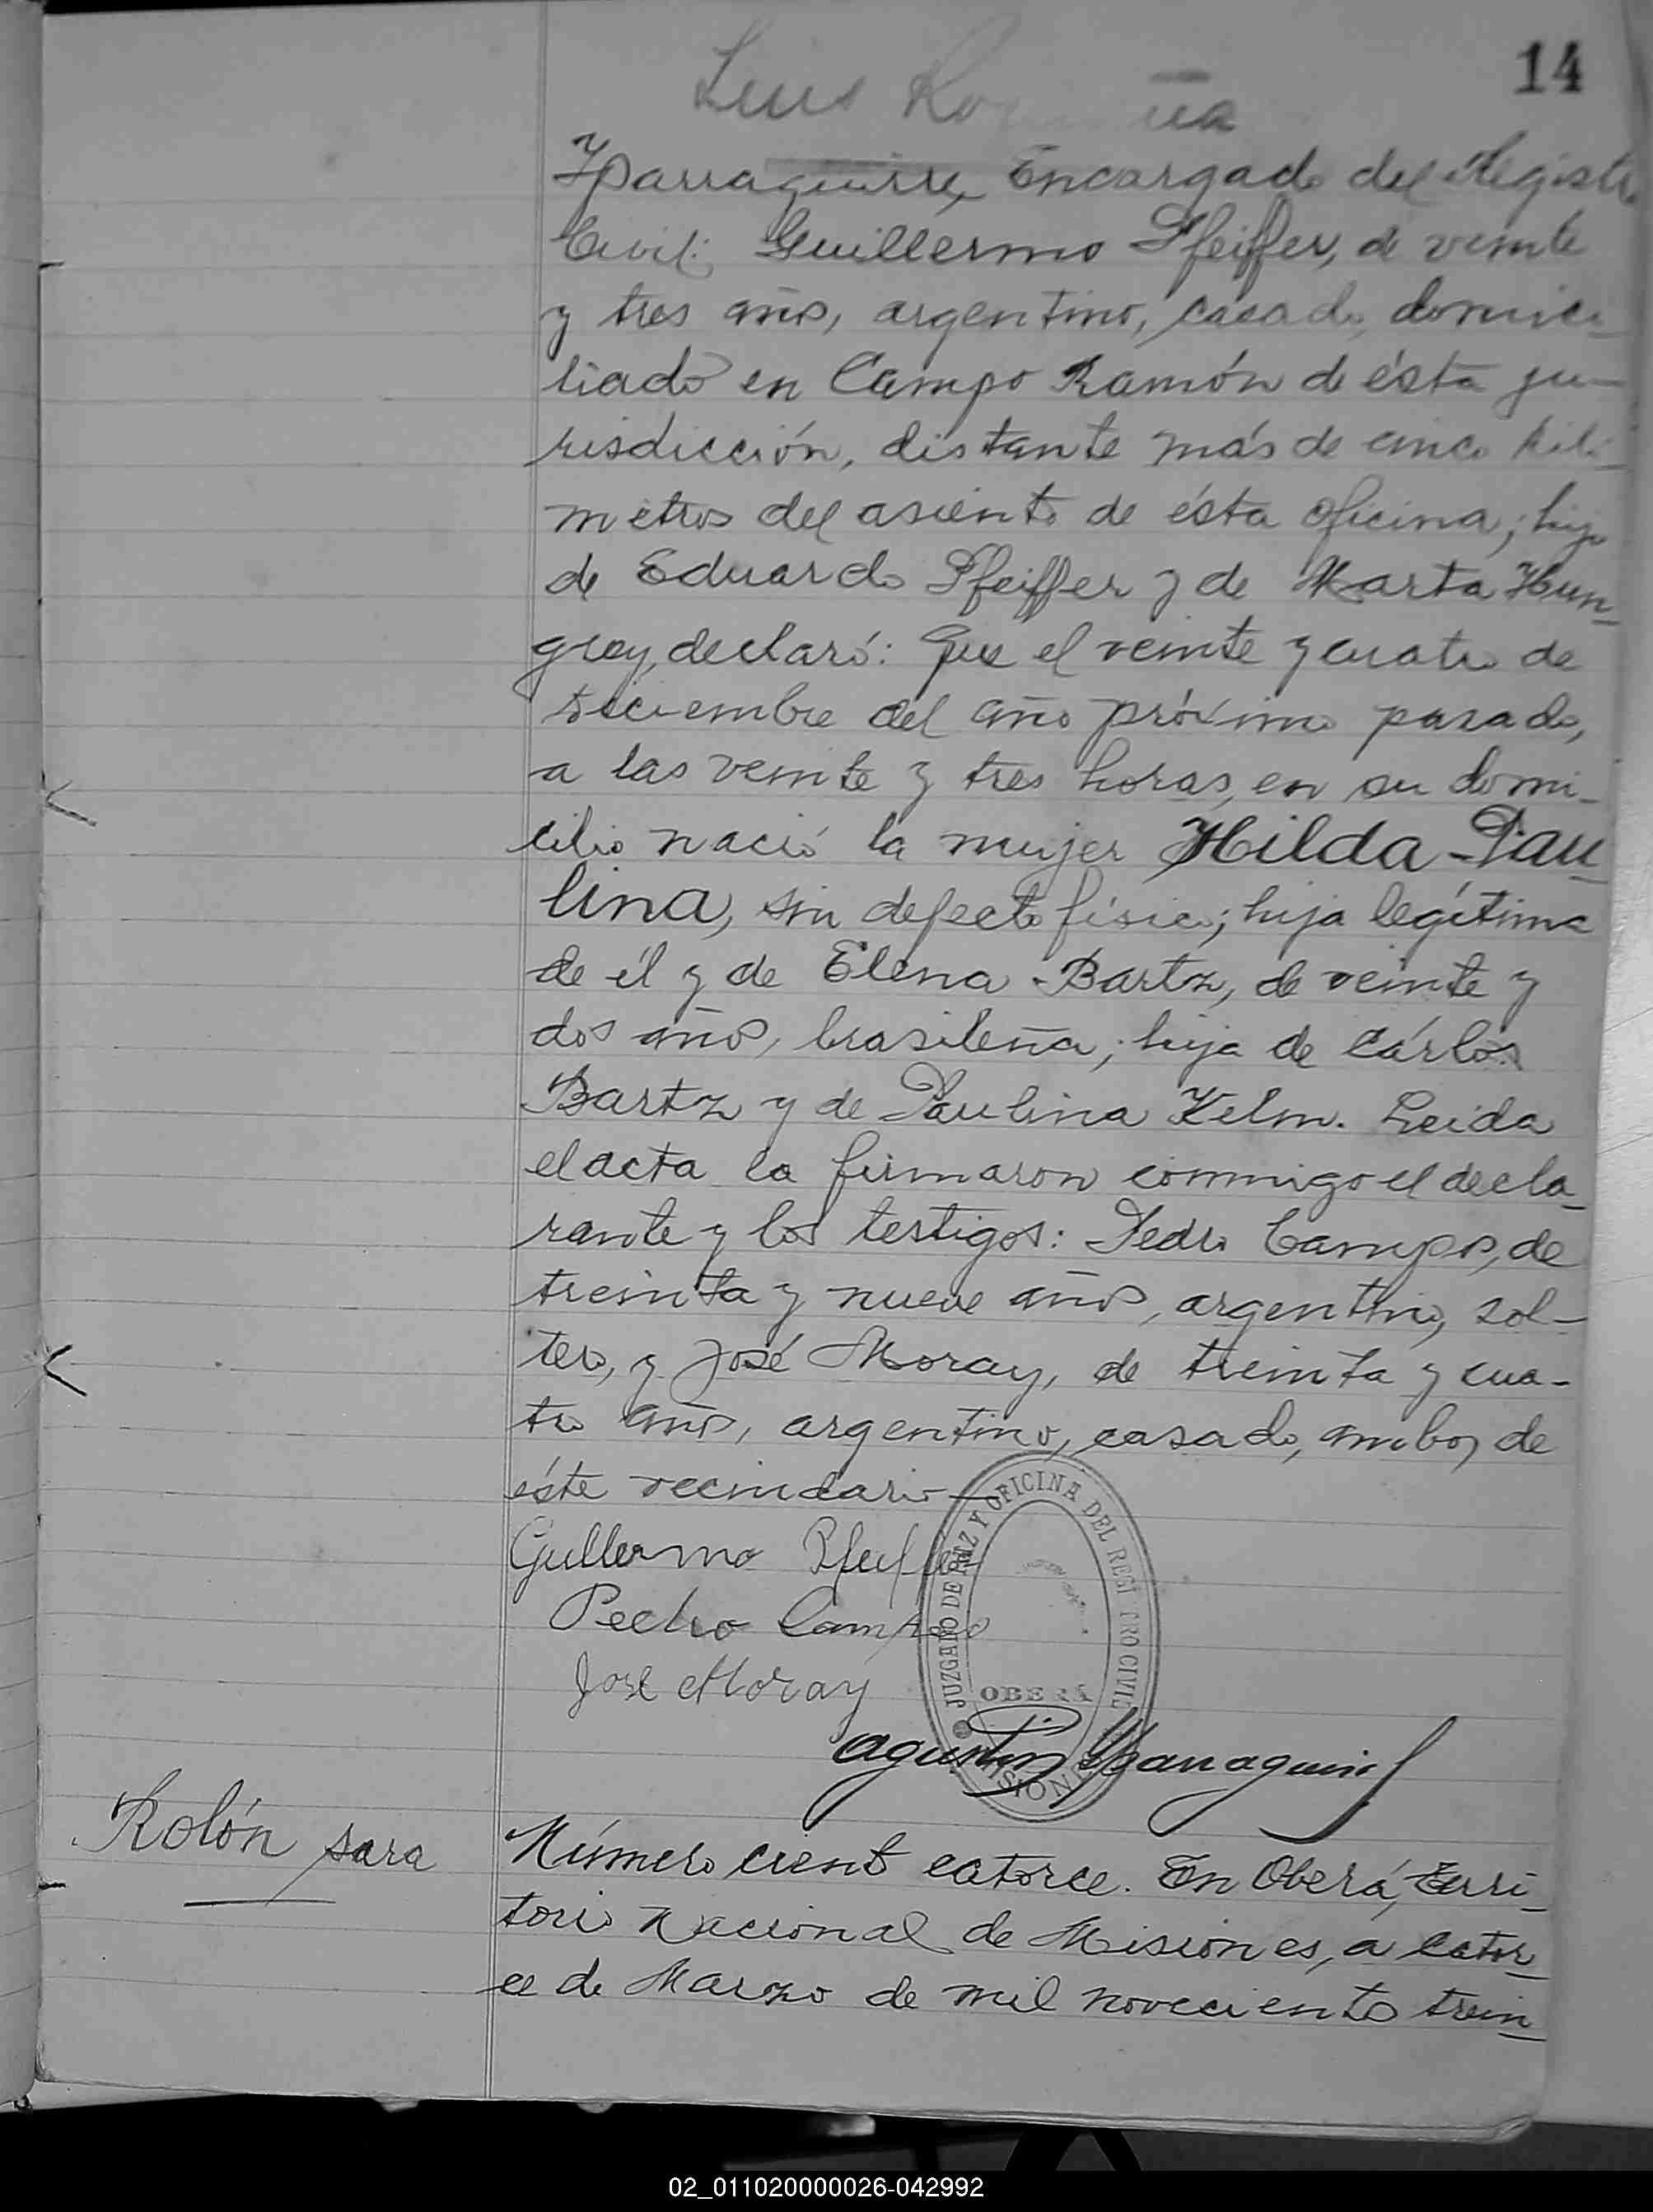 14
Luis
Yparraguirre, Encargado del Registro
Civil: Guillermo Pfeiffer, de veinte
y tres años, argentino, casado, domici-
liado en Campo Ramón de ésta ju-
risdicción, distante más de cinco kiló-
metros del asiento de ésta oficina; hijo
de Eduardo Pfeiffer y de Marta Hun-
grey, declaró: Que el veinte y cuatro de
diciembre del año próximo pasado,
a las veinte y tres horas, en su domi-
cilio nació la mujer Hilda Pau-
lina, sin defecto físico; hija legítima
de él y de Elena Bartz, de veinte y
dos años, brasileña; hija de Cárlos
Bartz y de Paulina Kelm. Leida
el acta la firmaron conmigo el decla-
rante y los testigos: Pedro Campos, de
treinta y nueve años, argentino, sol-
tero, y José Moray, de treinta y cua-
tro años, argentino, casado, ambos de
éste vecindario—
Gullermo Pfeiffer
Pedro Campos
José Moray
JUZGADO DE PAZ Y OFICINA DEL REGISTRO CIVIL
OBERÁ
MISIONES
Agustín Yparraguirre
Rolón Sara
Número ciento catorce. En Oberá, Terri-
torio Nacional de Misiones, a cator-
ce de Marzo de mil novecientos trein-
02_011020000026-042992